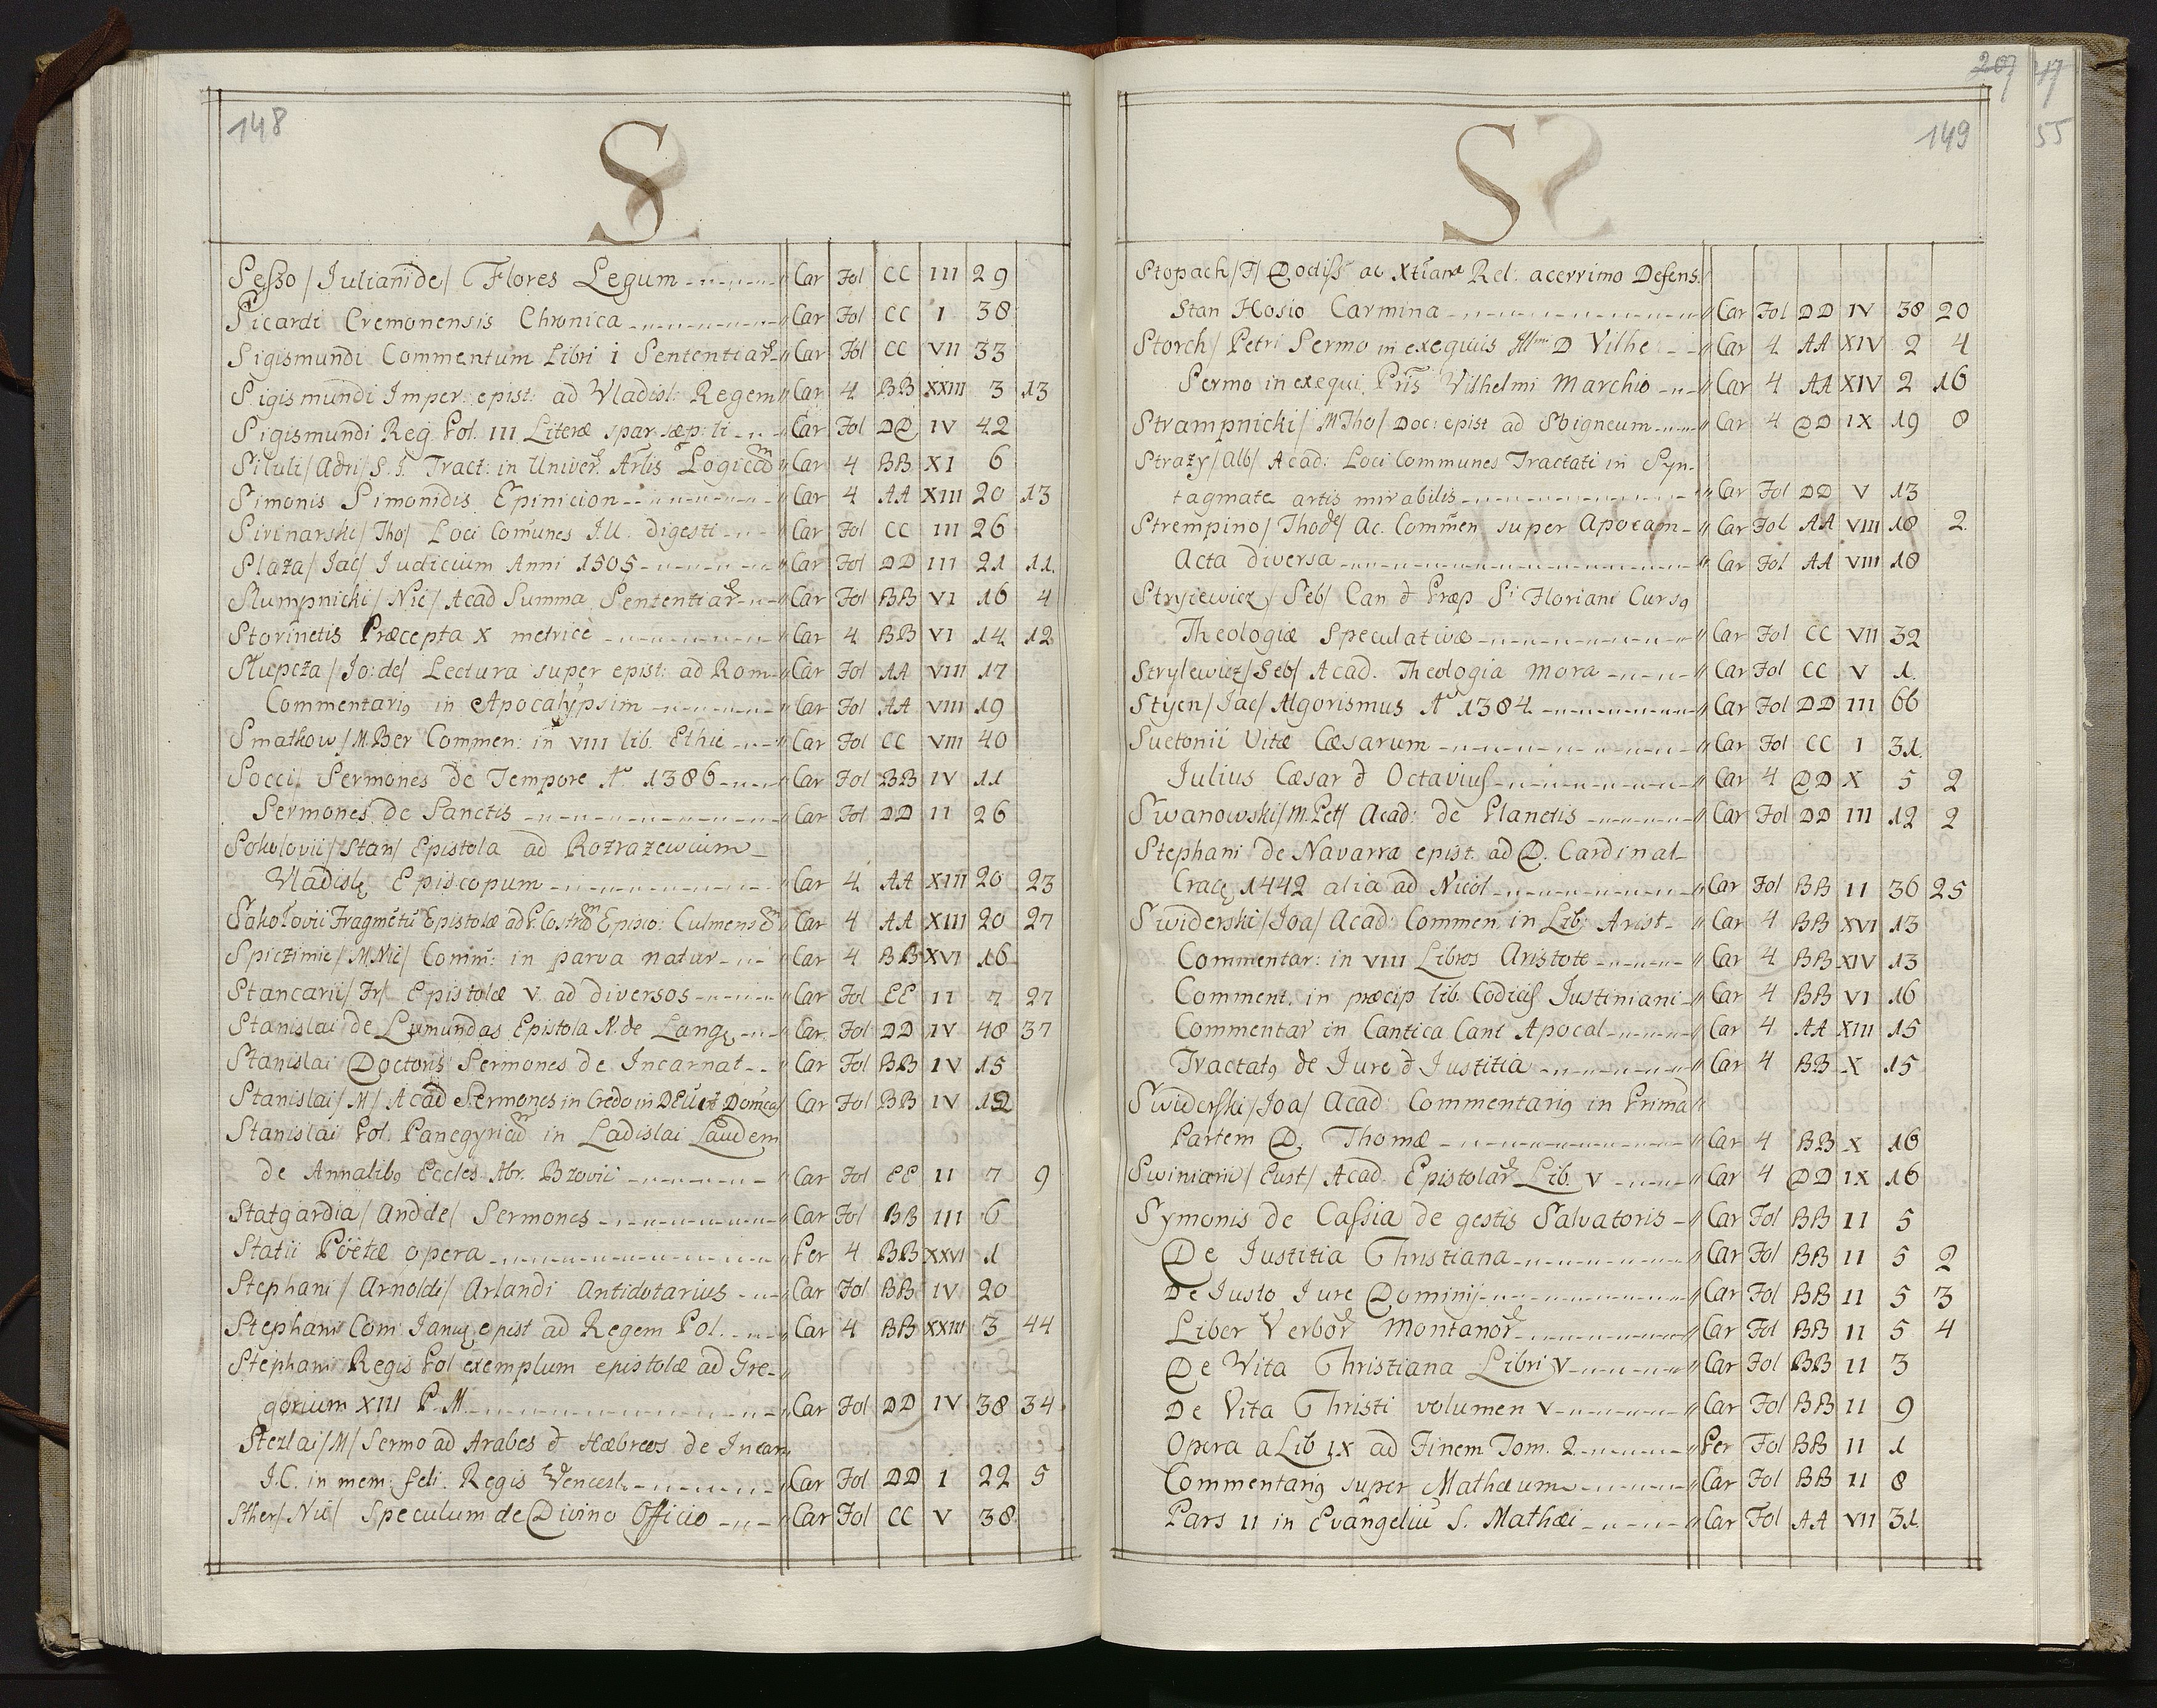 148
S
Seßo / Juliani de / Flores Legum Car Fol CC III 29
Sicardi Cremonensis Chronica Car Fol CC I 38
Sigismundi Commentum Libri i Sententiar Car Fol CC VII 33
Sigismundi Imper: epist: ad Vladisl: Regem Car 4 BB XXIII 3 13
Sigismundi Reg. Pol. III Literæ Car Fol DD IV 42
Siluli / Adri / S. J. Tract: in Univer. Artis Logicam Car 4 BB XI 6
Simonis Simonidis Epinicion Car 4 AA XIII 20 13
Sirinarski / Tho / Loci Comunes J.U. digesti Car Fol CC III 26
Slaza / Jac / Judicium Anni 1505 Car Fol DD III 21 11
Slumpnicki / Nic / Acad Summa Sententiar Car Fol BB VI 16 4
Storinetis Præcepta X metrice Car 4 BB VI 14 12
Słupcza / Jo: de / Lectura super epist: ad Rom Car Fol AA VIII 17
Commentari9 in Apocalypsim Car Fol AA VIII 19
Smatkow / M. Ber Commen: in VIII lib. Ethic Car Fol CC VIII 40
Socci Sermones de Tempore A° 1386 Car Fol BB IV 11
Sermones de Sanctis Car Fol DD II 26
Sokolovii / Stan / Epistola ad Rozrazewium
Vladislę Episcopum Car 4 AA XIII 20 23
Sakołovii Fragmetu Epistolæ ad P. Episco: Culmens Car 4 AA XIII 20 27
Spiczimic / M. Nic / Comm: in parva natur Car 4 BB XVI 16
Stancarii / Fr / Epistolæ V ad diversos Car Fol EE II 7 27
Stanislai de Lumundas Epistola N. de Langę Car Fol DD IV 48 37
Stanislai Doctoris Sermones de Incarnat Car Fol BB IV 15
Stanislai / M / Acad Sermones in Credo in DEU et Domica Car Fol BB IV 12
Stanislai Pol. Panegyricam in Ladislai Laudem
de Annalib9 Eccles. Abr. Bzovii Car Fol EE II 7 9
Statgardia / And de / Sermones Car Fol BB III 6
Statii Poëtæ opera Per 4 BB XXVI 1
Stephani / Arnoldi / Arlandi Antidotarius Car Fol BB IV 20
Stephani Com: Janus epist ad Regem Pol. Car 4 BB XXIII 3 44
Stephani Regis Pol exemplum epistolæ ad Gre-
gorium XIII P. M. Car Fol DD IV 38 34
Stezlai / M / Sermo ad Arabes & Hæbreos de Incarn
J.C. in mem: feli: Regis Vencesl. Car Fol DD I 22 5
Sther / Nic / Speculum de Divino Officio Car Fol CC V 38
207 47
149 55
S
Stopach / J / Dociss ac Xtianæ Rel: acerrimo Defens.
Stan Hosio Carmina Car Fol DD IV 38 20
Storch / Petri Sermo in exequiis Illmi D Vilhe Car 4 AA XIV 2 4
Sermo in exequi. Pris Vilhelmi Marchio Car 4 AA XIV 2 16
Strampnicki / M Tho / Doc: epist ad Sbigneum Car 4 DD IX 19 8
Strazy / Alb / Acad: Loci Communes Tractati in Syn-
tagmate artis mirabilis Car Fol DD V 13
Strempino / Tho de / Ac. Commen super Apocam Car Fol AA VIII 18 2
Acta diversa Car Fol AA VIII 18
Stryiewicz / Seb / Can & Præp Si Floriani Curs9
Theologiæ Speculativæ Car Fol CC VII 32
Strylewicz / Seb / Acad. Theologia Mora Car Fol CC V 1
Stycn / Jac / Algorismus A° 1384 Car Fol DD III 66
Suetonii Vitæ Cæsarum Car Fol CC I 31
Julius Cæsar & Octavius Car 4 DD X 5 2
Swanowski / M. Pet / Acad: de Planetis Car Fol DD III 12 2
Stephani de Navarra epist. ad D. Cardinal
Cracę 1442 alia ad Nicol Car Fol BB II 36 25
Swiderski / Joa / Acad: Commen. in Lib: Arist Car 4 BB XVI 13
Commentar: in VIII Libros Aristote Car 4 BB XIV 13
Comment. in præcip lib. Codicis Justiniani Car 4 BB VI 16
Commentar in Cantica Cant Apocal Car 4 AA XIII 15
Tractat9 de Jure & Justitia Car 4 BB X 15
Swiderski / Joa / Acad: Commentari9 in Prima
Partem D. Thomæ Car 4 BB X 16
Swiniarii / Eust / Acad. Epistolar Lib. V Car 4 DD IX 16
Symonis de Caßia de gestis Salvatoris Car Fol BB II 5
De Justitia Christiana Car Fol BB II 5 2
De Justo Jure Dominij Car Fol BB II 5 3
Liber Verbor Montanor Car Fol BB II 5 4
De Vita Christiana Libri V Car Fol BB II 3
De Vita Christi volumen V Car Fol BB II 9
Opera a Lib IX ad Finem Tom. 2 Per Fol BB II 1
Commentari9 super Mathæum Car Fol BB II 8
Pars II in Evangeliu S. Mathæi Car Fol AA VII 31